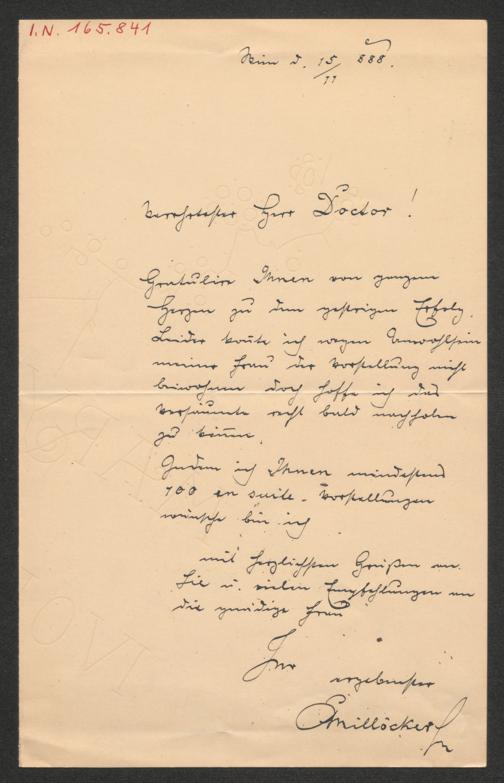 I.N. 165.841
Wien d. 15/11 888.
Verehrtester Herr Doctor!
Gratulire Ihnen von ganzem
Herzen zu dem gestrigen Erfolg.
Leider konte ich wegen Unwohlsein
meiner Frau der Vorstellung nicht
beiwohnen doch hoffe ich das
Versäumte recht bald nachholen
zu können.
Indem ich Ihnen mindestens
100 en suite-Vorstellungen
wünsche bin ich
mit herzlichsten Grüßen an
Sie u. vielen Empfehlungen an
die gnädige Frau
Ihr
ergebenster
CMillöcker